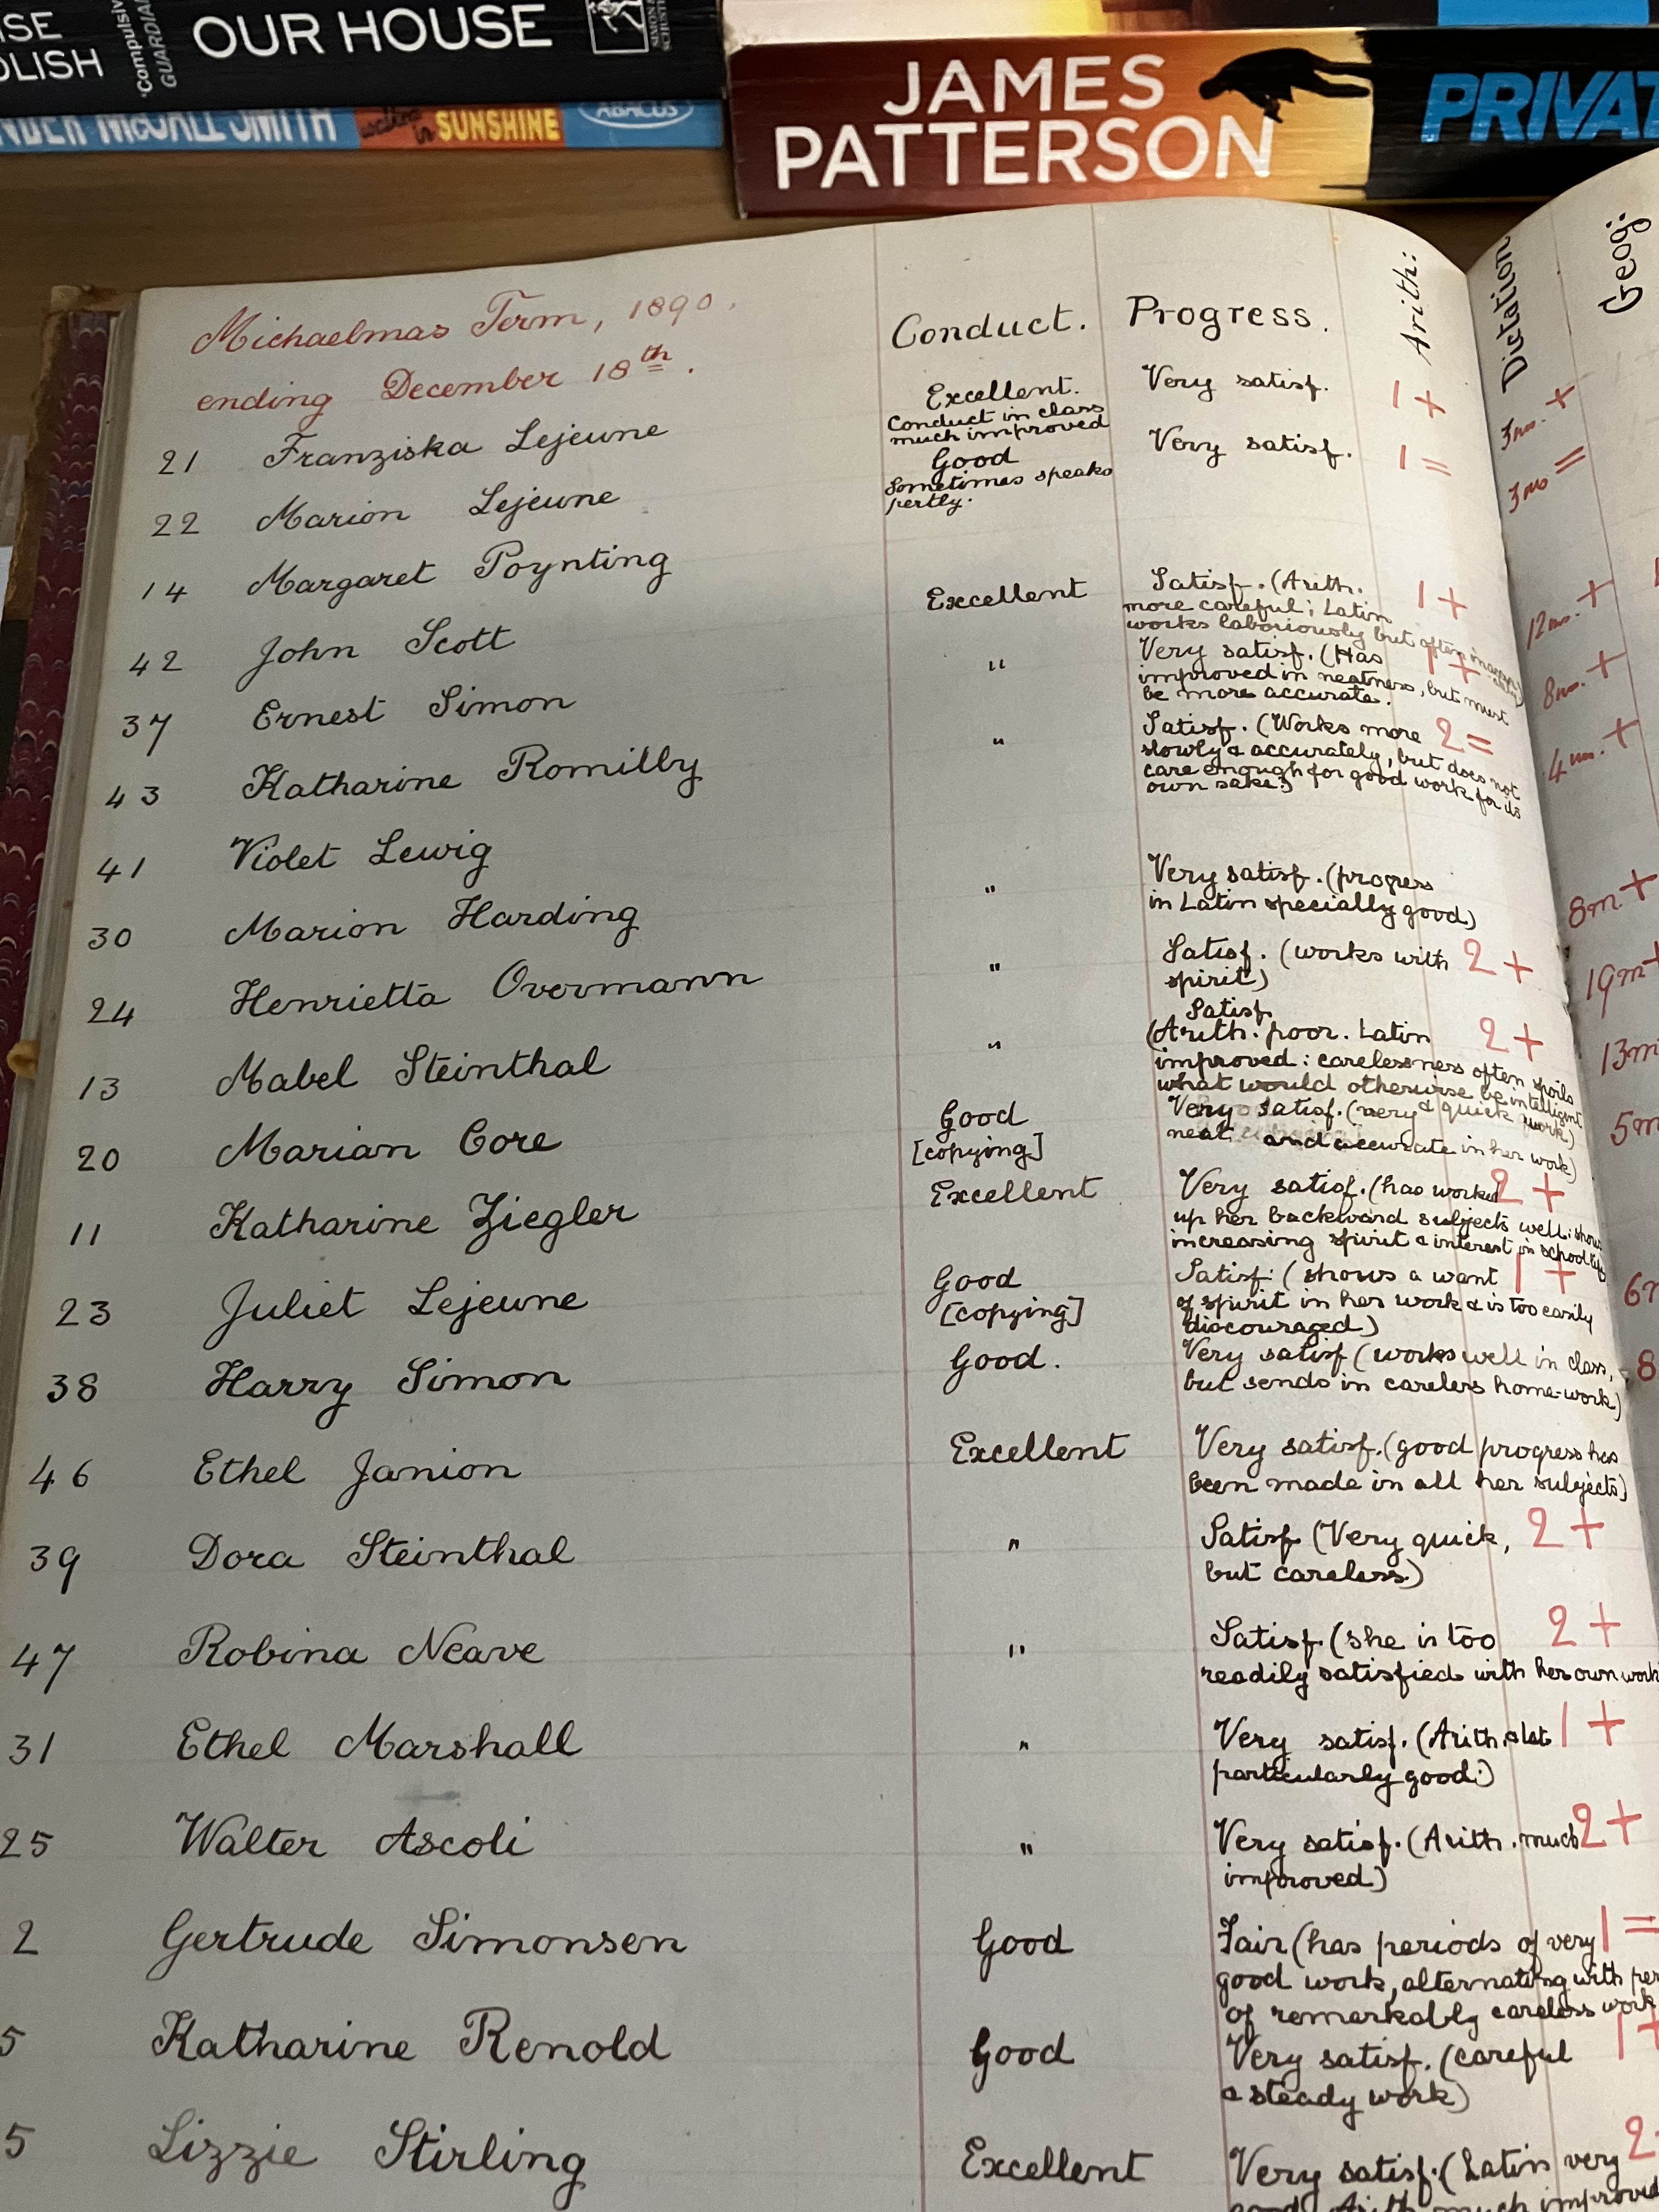 OUR HOUSE
'Compulsiv
GUARDIAN
SUNSHINE
ABACUS
JAMES
PATTERSON
PRIVAT
Michaelmas Term, 1890.
ending December 18th.
Conduct. Progress. Arith: Dictation Geog:
21 Franziska Lejeune Excellent. Very satisf. 1+ 3ms. +
Conduct in class
much improved
22 Marion Lejeune Good Very satisf. 1= 3ms =
Sometimes speaks
pertly.
14 Margaret Poynting
42 John Scott Excellent Satisf. (Arith. 1+ 12ms. +
more careful; Latin
works laboriously but often
37 Ernest Simon " Very satisf. (Has 1+ 8ms. +
improved in neatness, but must
be more accurate.
43 Katharine Romilly " Satisf. (Works more 2= 4ms. +
slowly & accurately, but does not
care enough for good work for its
own sake.)
41 Violet Lewig
30 Marion Harding " Very satisf. (progress 8m. +
in Latin specially good)
24 Henrietta Overmann " Satisf. (works with 2+ 19m +
spirit)
13 Mabel Steinthal " Satisf. 2+ 13m
(Arith. poor. Latin
improved: carelessness often spoils
what would otherwise be intelligent
20 Marian Core Good Very satisf. (very & quick work) 5m
[copying] neat and accurate in her work)
11 Katharine Ziegler Excellent Very satisf. (has worked 2+
up her backward subjects well: shows
increasing spirit & interest in school life
23 Juliet Lejeune Good Satisf: (shows a want 1+ 6m
[copying] of spirit in her work & is too easily
discouraged)
38 Harry Simon Good. Very satisf (works well in class, 8
but sends in careless home-work)
46 Ethel Janion Excellent Very satisf. (good progress has
been made in all her subjects)
39 Dora Steinthal " Satisf (Very quick, 2+
but careless.)
47 Robina Neave " Satisf. (she is too 2+
readily satisfied with her own work
31 Ethel Marshall " Very satisf. (Arith. & Lat 1+
particularly good.)
25 Walter Ascoli " Very satisf. (Arith. much 2+
improved)
2 Gertrude Simonsen Good Fair (has periods of very 1=
good work, alternating with per
of remarkably careless work
5 Katharine Renold Good Very satisf. (careful 1+
& steady work)
5 Lizzie Stirling Excellent Very satisf. (Latin very 2
good. Arith. much improved